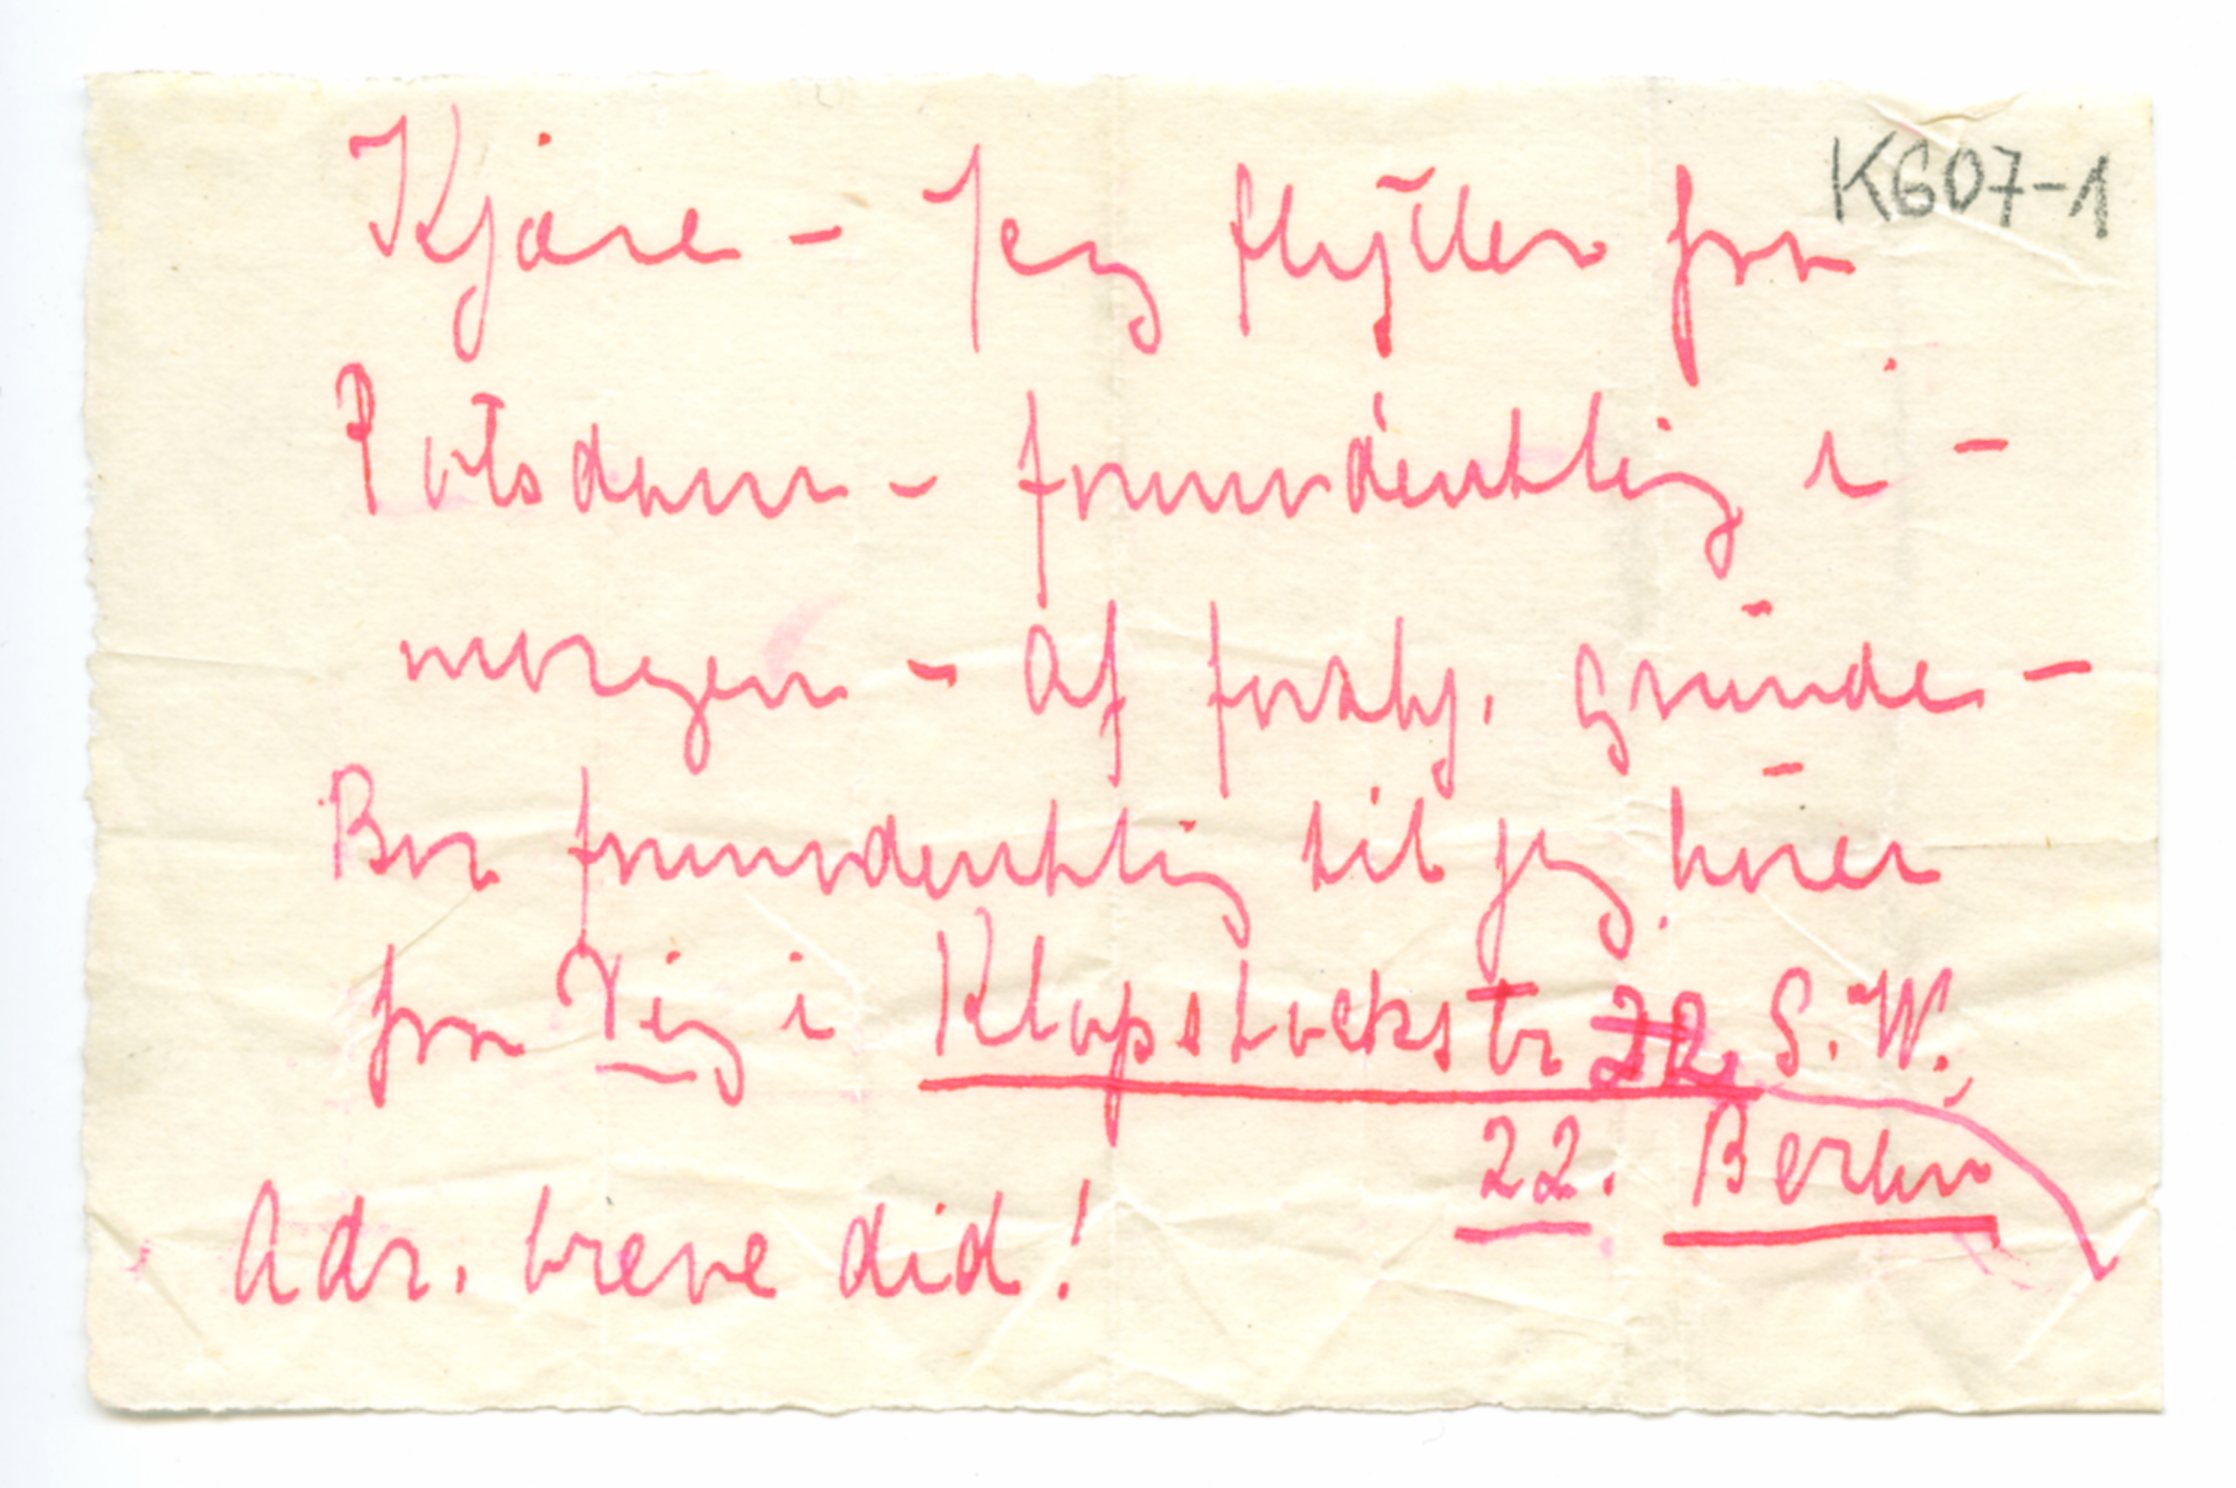 K607-1
Kjære – Jeg flytter fra
Potsdam – formodentlig i –
morgen – Af forskj. grunde –
Bor formodentlig til jeg hører
fra Dig i Klopstockstr 22. S. W.,
22. Berlin
Adr. breve did!